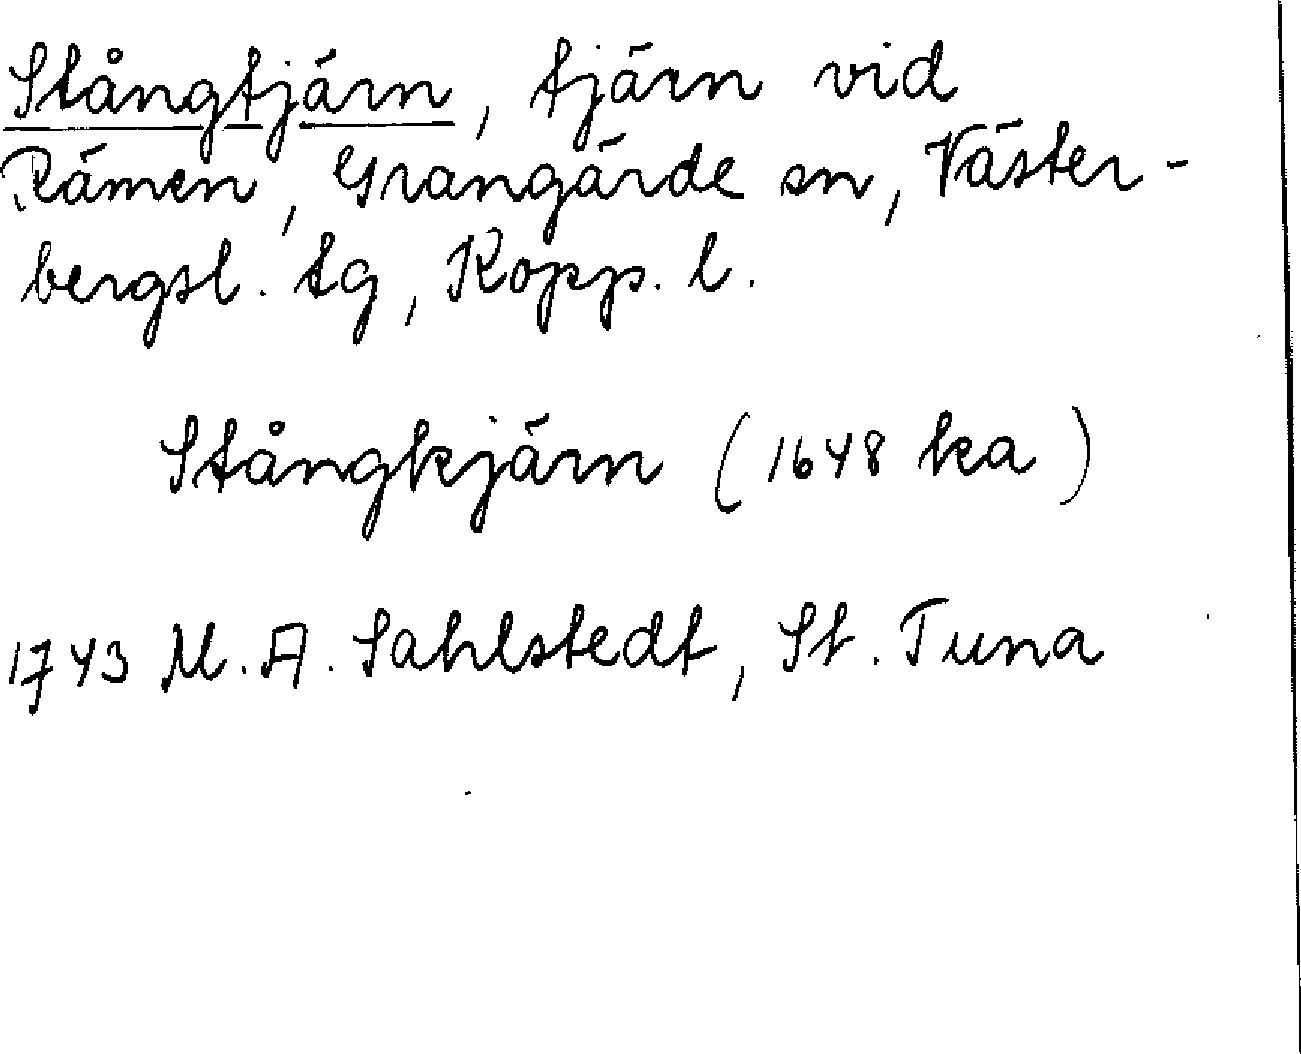 Stångtjärn, tjärn vid
Rämen, Grangärde sn, Väster-
bergsl. tg, Kopp. l.
Stångkjärn (1648 ka)
1743 M. A. Sahlstedt, St. Tuna